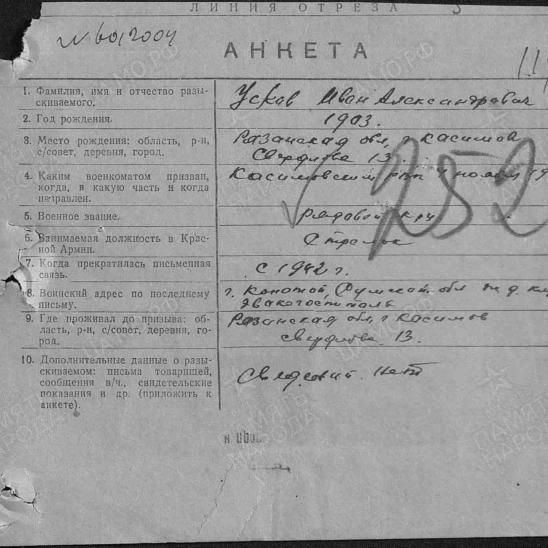 ЛИНИЯ ОТРЕЗА
АНКЕТА
1. Фамилия, имя и отчество разы-
скиваемого.
Усков Иван Александрович
2. Год рождения.
1903.
3. Место рождения: область, р-н,
с/совет, деревня, город.
Рязанская обл, г Касимов
Свердлова 13.
4. Каким военкоматом призван,
когда, в какую часть и когда
направлен.
Касимовским рвк 4 ноября 19
252
5. Военное звание.
рядовой кр-ц
6. Занимаемая должность в Крас-
ной Армии.
Стрелок
7. Когда прекратилась письменная
связь.
с 1942 г.
8. Воинский адрес по последнему
письму.
г. Конотоп, Сумской обл
эвакогоспиталь
9. Где проживал до призыва: об-
ласть, р-н, с/совет, деревня, го-
род.
Рязанская обл, г Касимов
Свердлова 13.
10. Дополнительные данные о разы-
скиваемом: письма товарищей,
сообщения в/ч., свидетельские
показания и др. (приложить к
анкете).
Сведений нет
ПАМЯТЬ
НАРОДА